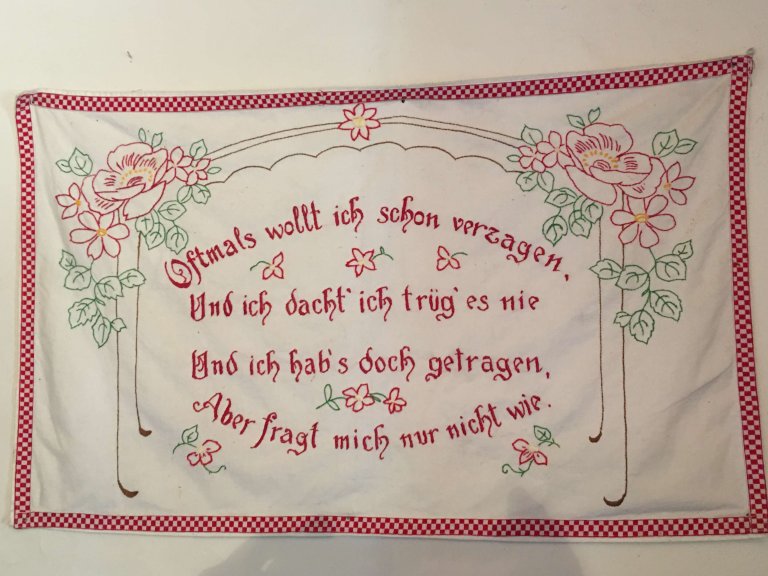 Oftmals wollt ich schon verzagen,
Und ich dacht' ich trüg' es nie
Und ich hab's doch getragen,
Aber fragt mich nur nicht wie.